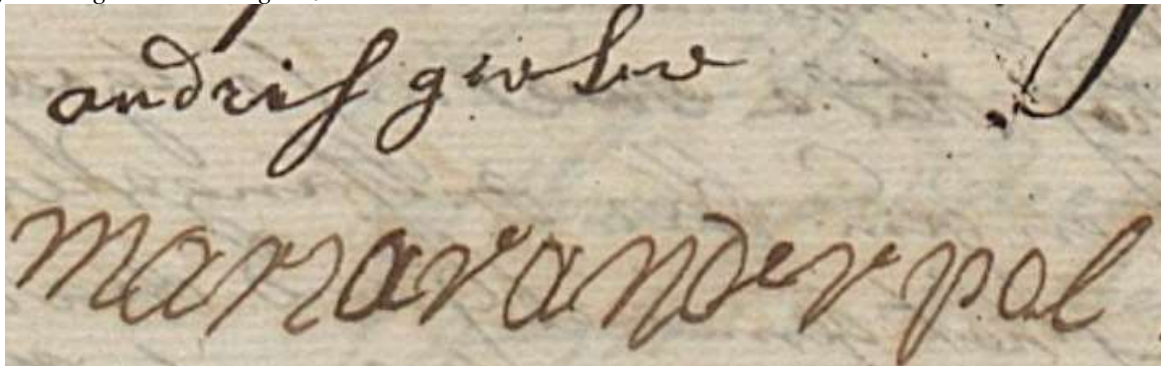 andris grebe
maria van der pol